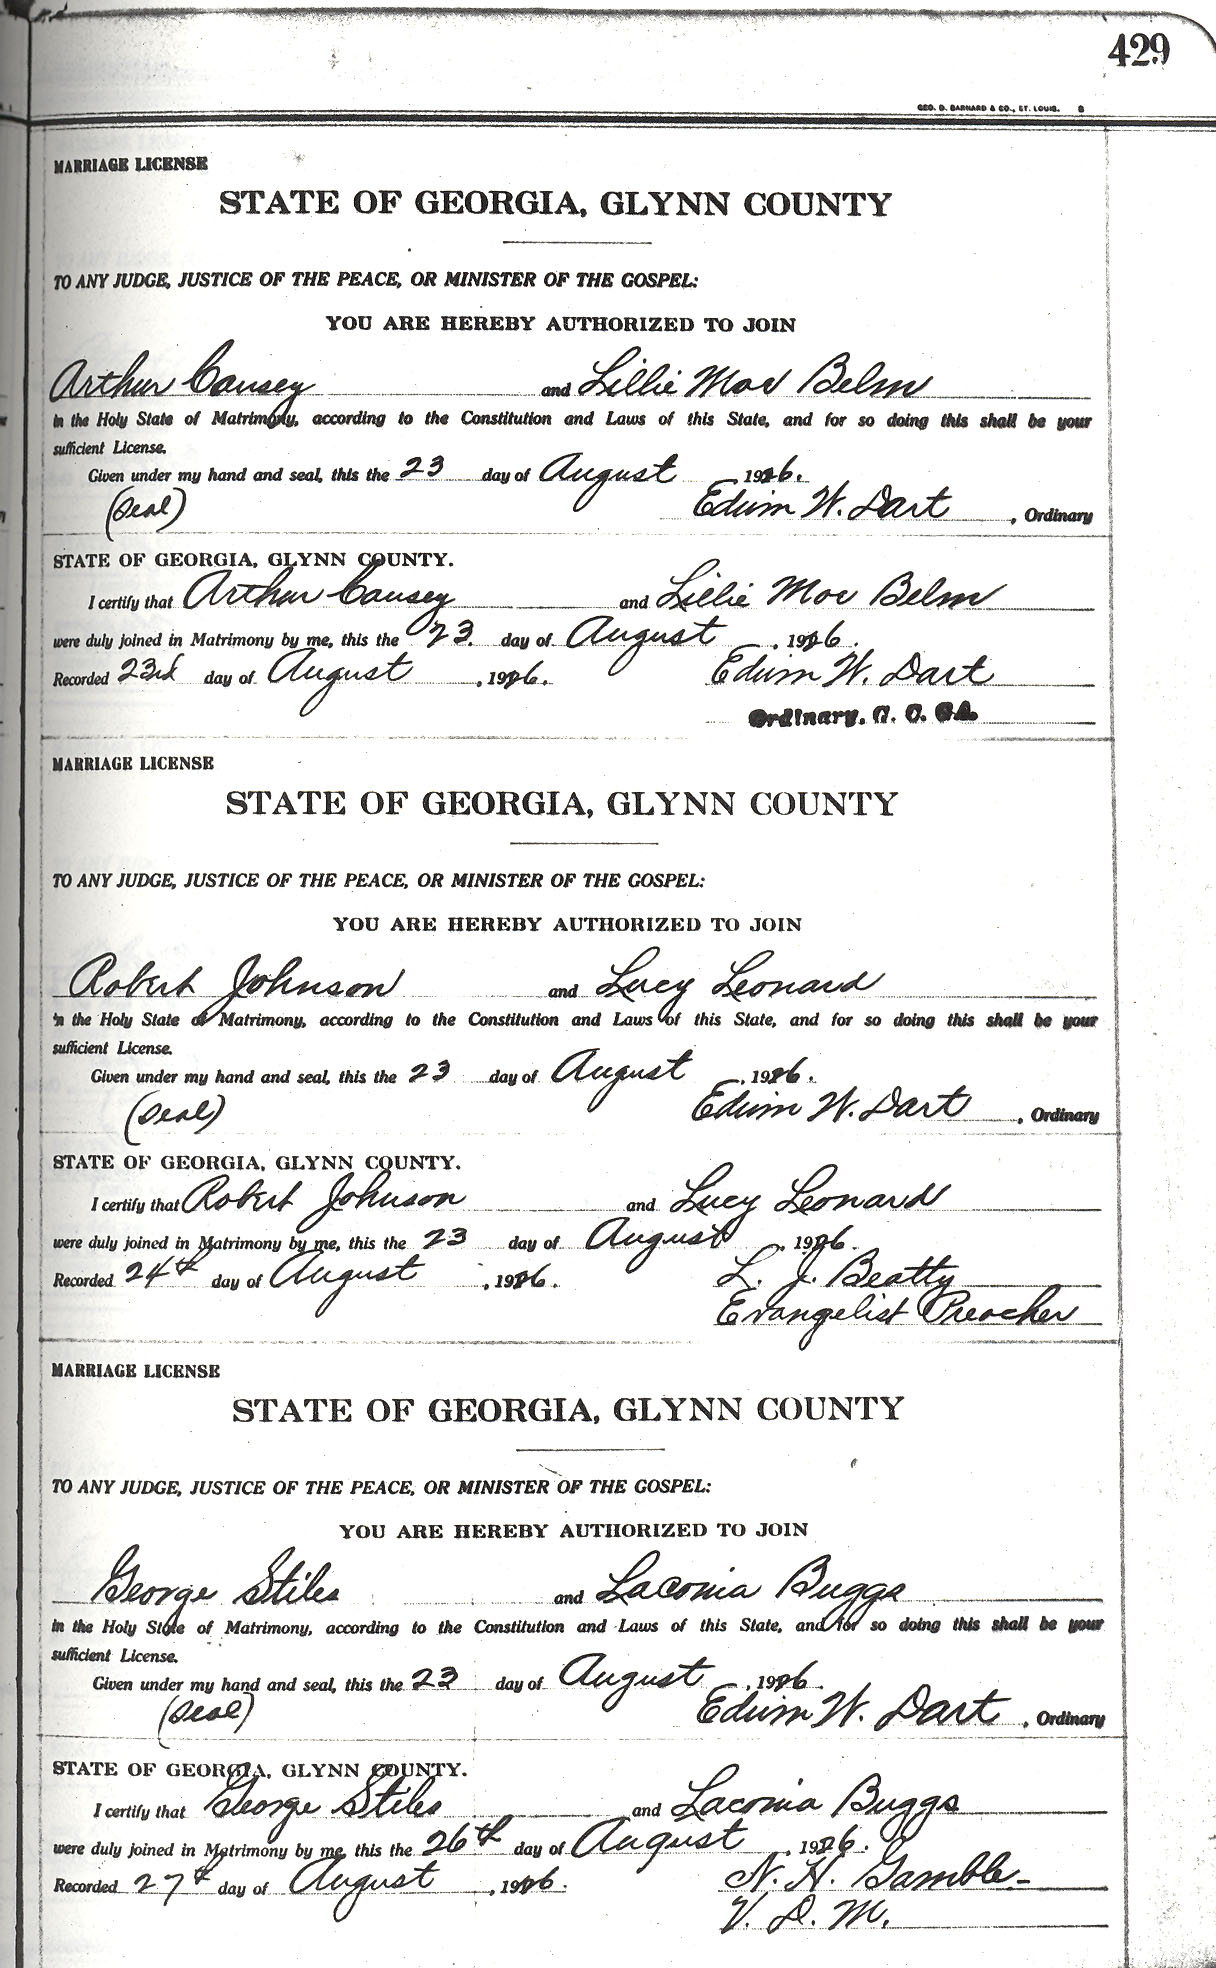 429
GEO. D. BARNARD & CO., ST. LOUIS. 8
MARRIAGE LICENSE
STATE OF GEORGIA, GLYNN COUNTY
TO ANY JUDGE, JUSTICE OF THE PEACE, OR MINISTER OF THE GOSPEL:
YOU ARE HEREBY AUTHORIZED TO JOIN
Arthur Causey and Lillie Mae Belm
in the Holy State of Matrimony, according to the Constitution and Laws of this State, and for so doing this shall be your
sufficient License.
Given under my hand and seal, this the 23 day of August , 1926.
(Seal) Edwin W. Dart , Ordinary
STATE OF GEORGIA, GLYNN COUNTY.
I certify that Arthur Causey and Lillie Mae Belm
were duly joined in Matrimony by me, this the 23. day of August , 1926.
Recorded 23rd day of August , 1926. Edwin W. Dart
Ordinary, G. C. GA.
MARRIAGE LICENSE
STATE OF GEORGIA, GLYNN COUNTY
TO ANY JUDGE, JUSTICE OF THE PEACE, OR MINISTER OF THE GOSPEL:
YOU ARE HEREBY AUTHORIZED TO JOIN
Robert Johnson and Lucy Leonard
in the Holy State of Matrimony, according to the Constitution and Laws of this State, and for so doing this shall be your
sufficient License.
Given under my hand and seal, this the 23 day of August , 1926.
(Seal) Edwin W. Dart , Ordinary
STATE OF GEORGIA, GLYNN COUNTY.
I certify that Robert Johnson and Lucy Leonard
were duly joined in Matrimony by me, this the 23 day of August , 1926.
Recorded 24th day of August , 1926. L. J. Beatty
Evangelist Preacher
MARRIAGE LICENSE
STATE OF GEORGIA, GLYNN COUNTY
TO ANY JUDGE, JUSTICE OF THE PEACE, OR MINISTER OF THE GOSPEL:
YOU ARE HEREBY AUTHORIZED TO JOIN
George Stiles and Laconia Buggs
in the Holy State of Matrimony, according to the Constitution and Laws of this State, and for so doing this shall be your
sufficient License.
Given under my hand and seal, this the 23 day of August , 1926.
(Seal) Edwin W. Dart , Ordinary
STATE OF GEORGIA, GLYNN COUNTY.
I certify that George Stiles and Laconia Buggs
were duly joined in Matrimony by me, this the 26th day of August , 1926.
Recorded 27th day of August , 1926. N. H. Gamble-
V. D. M.